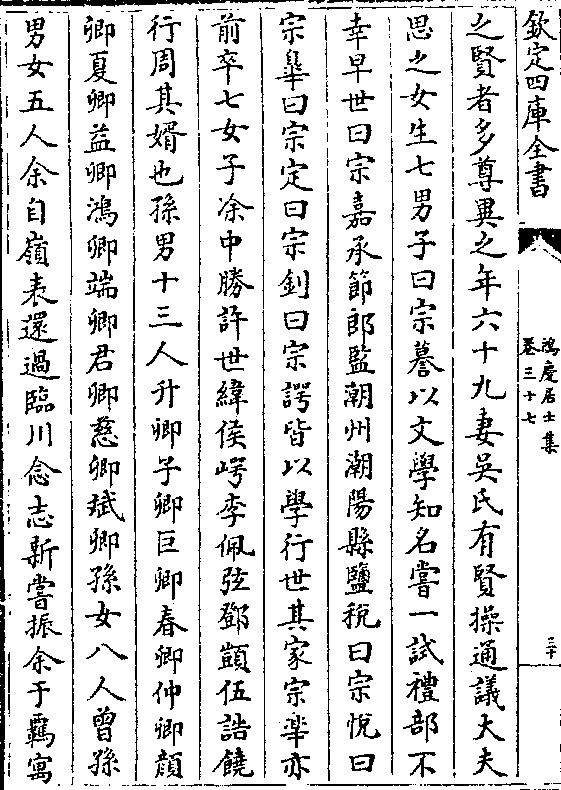 欽定四庫全書
鴻慶居士集
卷三十七
三十
之賢者多尊異之年六十九妻吳氏有賢操通議大夫
思之女生七男子曰宗謩以文學知名嘗一試禮部不
幸早世曰宗嘉承節郎監潮州潮陽縣鹽稅曰宗悅曰
宗皞曰宗定曰宗釗曰宗諤皆以學行世其家宗皞亦
前卒七女子凃中勝許世緯侯崿李佩弦鄧顗伍誥饒
行周其婿也孫男十三人升卿子卿巨卿春卿仲卿顔
卿夏卿益卿鴻卿端卿君卿慈卿斌卿孫女八人曾孫
男女五人余自嶺表還過臨川念志新嘗振余于羇寓